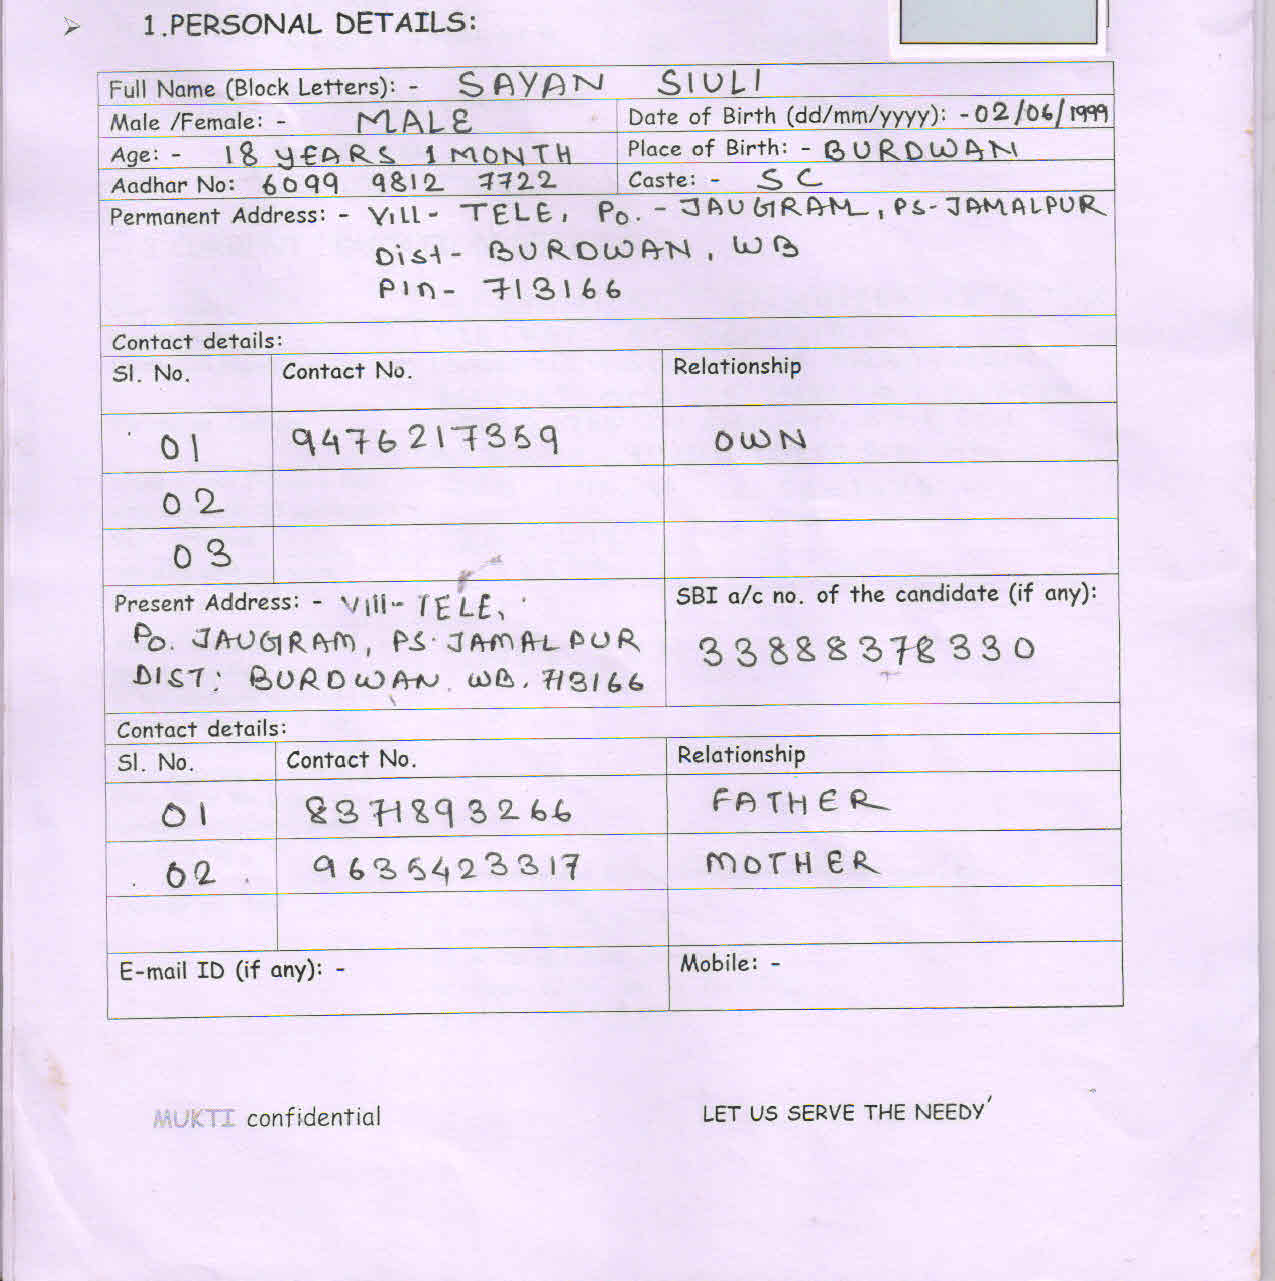 ➢ 1.PERSONAL DETAILS:
Full Name (Block Letters): - SAYAN SIULI
Male /Female: - MALE Date of Birth (dd/mm/yyyy): - 02/06/1999
Age: - 18 YEARS 1 MONTH Place of Birth: - BURDWAN
Aadhar No: 6099 9812 7722 Caste: - SC
Permanent Address: - Vill - TELE, Po. - JAUGRAM, PS-JAMALPUR
Dist - BURDWAN, WB
Pin - 713166
Contact details:
Sl. No. Contact No. Relationship
01 9476217359 OWN
02
03
Present Address: - Vill - TELE, SBI a/c no. of the candidate (if any):
Po. JAUGRAM, PS. JAMALPUR 33888378330
DIST: BURDWAN. WB. 713166
Contact details:
Sl. No. Contact No. Relationship
01 8371893266 FATHER
02 9635423317 MOTHER
E-mail ID (if any): - Mobile: -
MUKTI confidential LET US SERVE THE NEEDY'